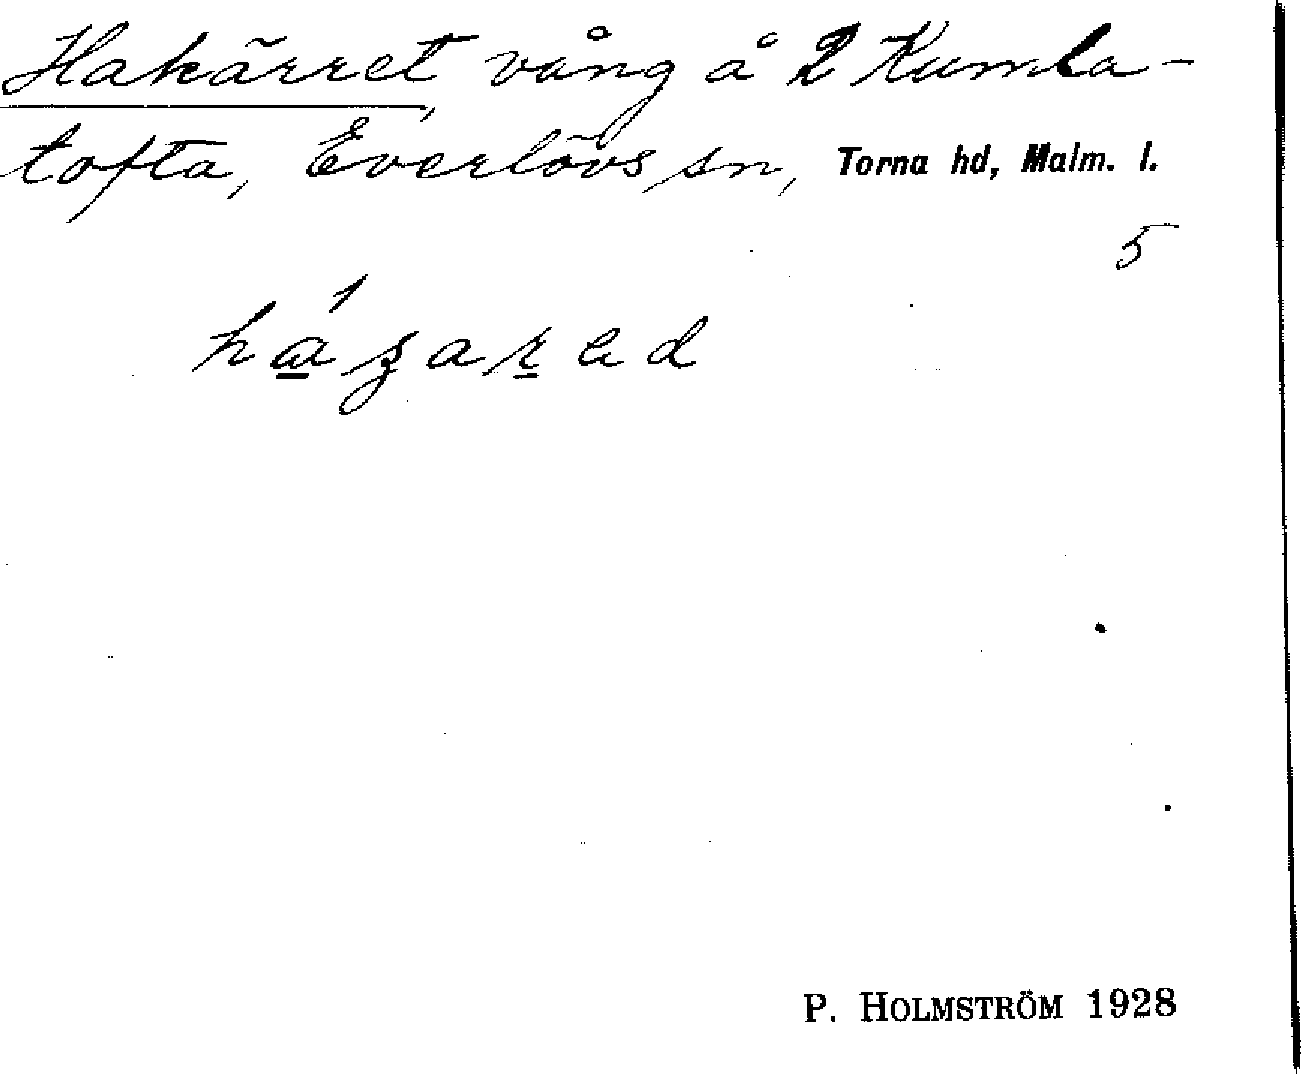 Hakärret, vång å 2 Kumla-
tofta, Everlövs sn, Torna hd, Malm. l.
5
P. HOLMSTRÖM 1928